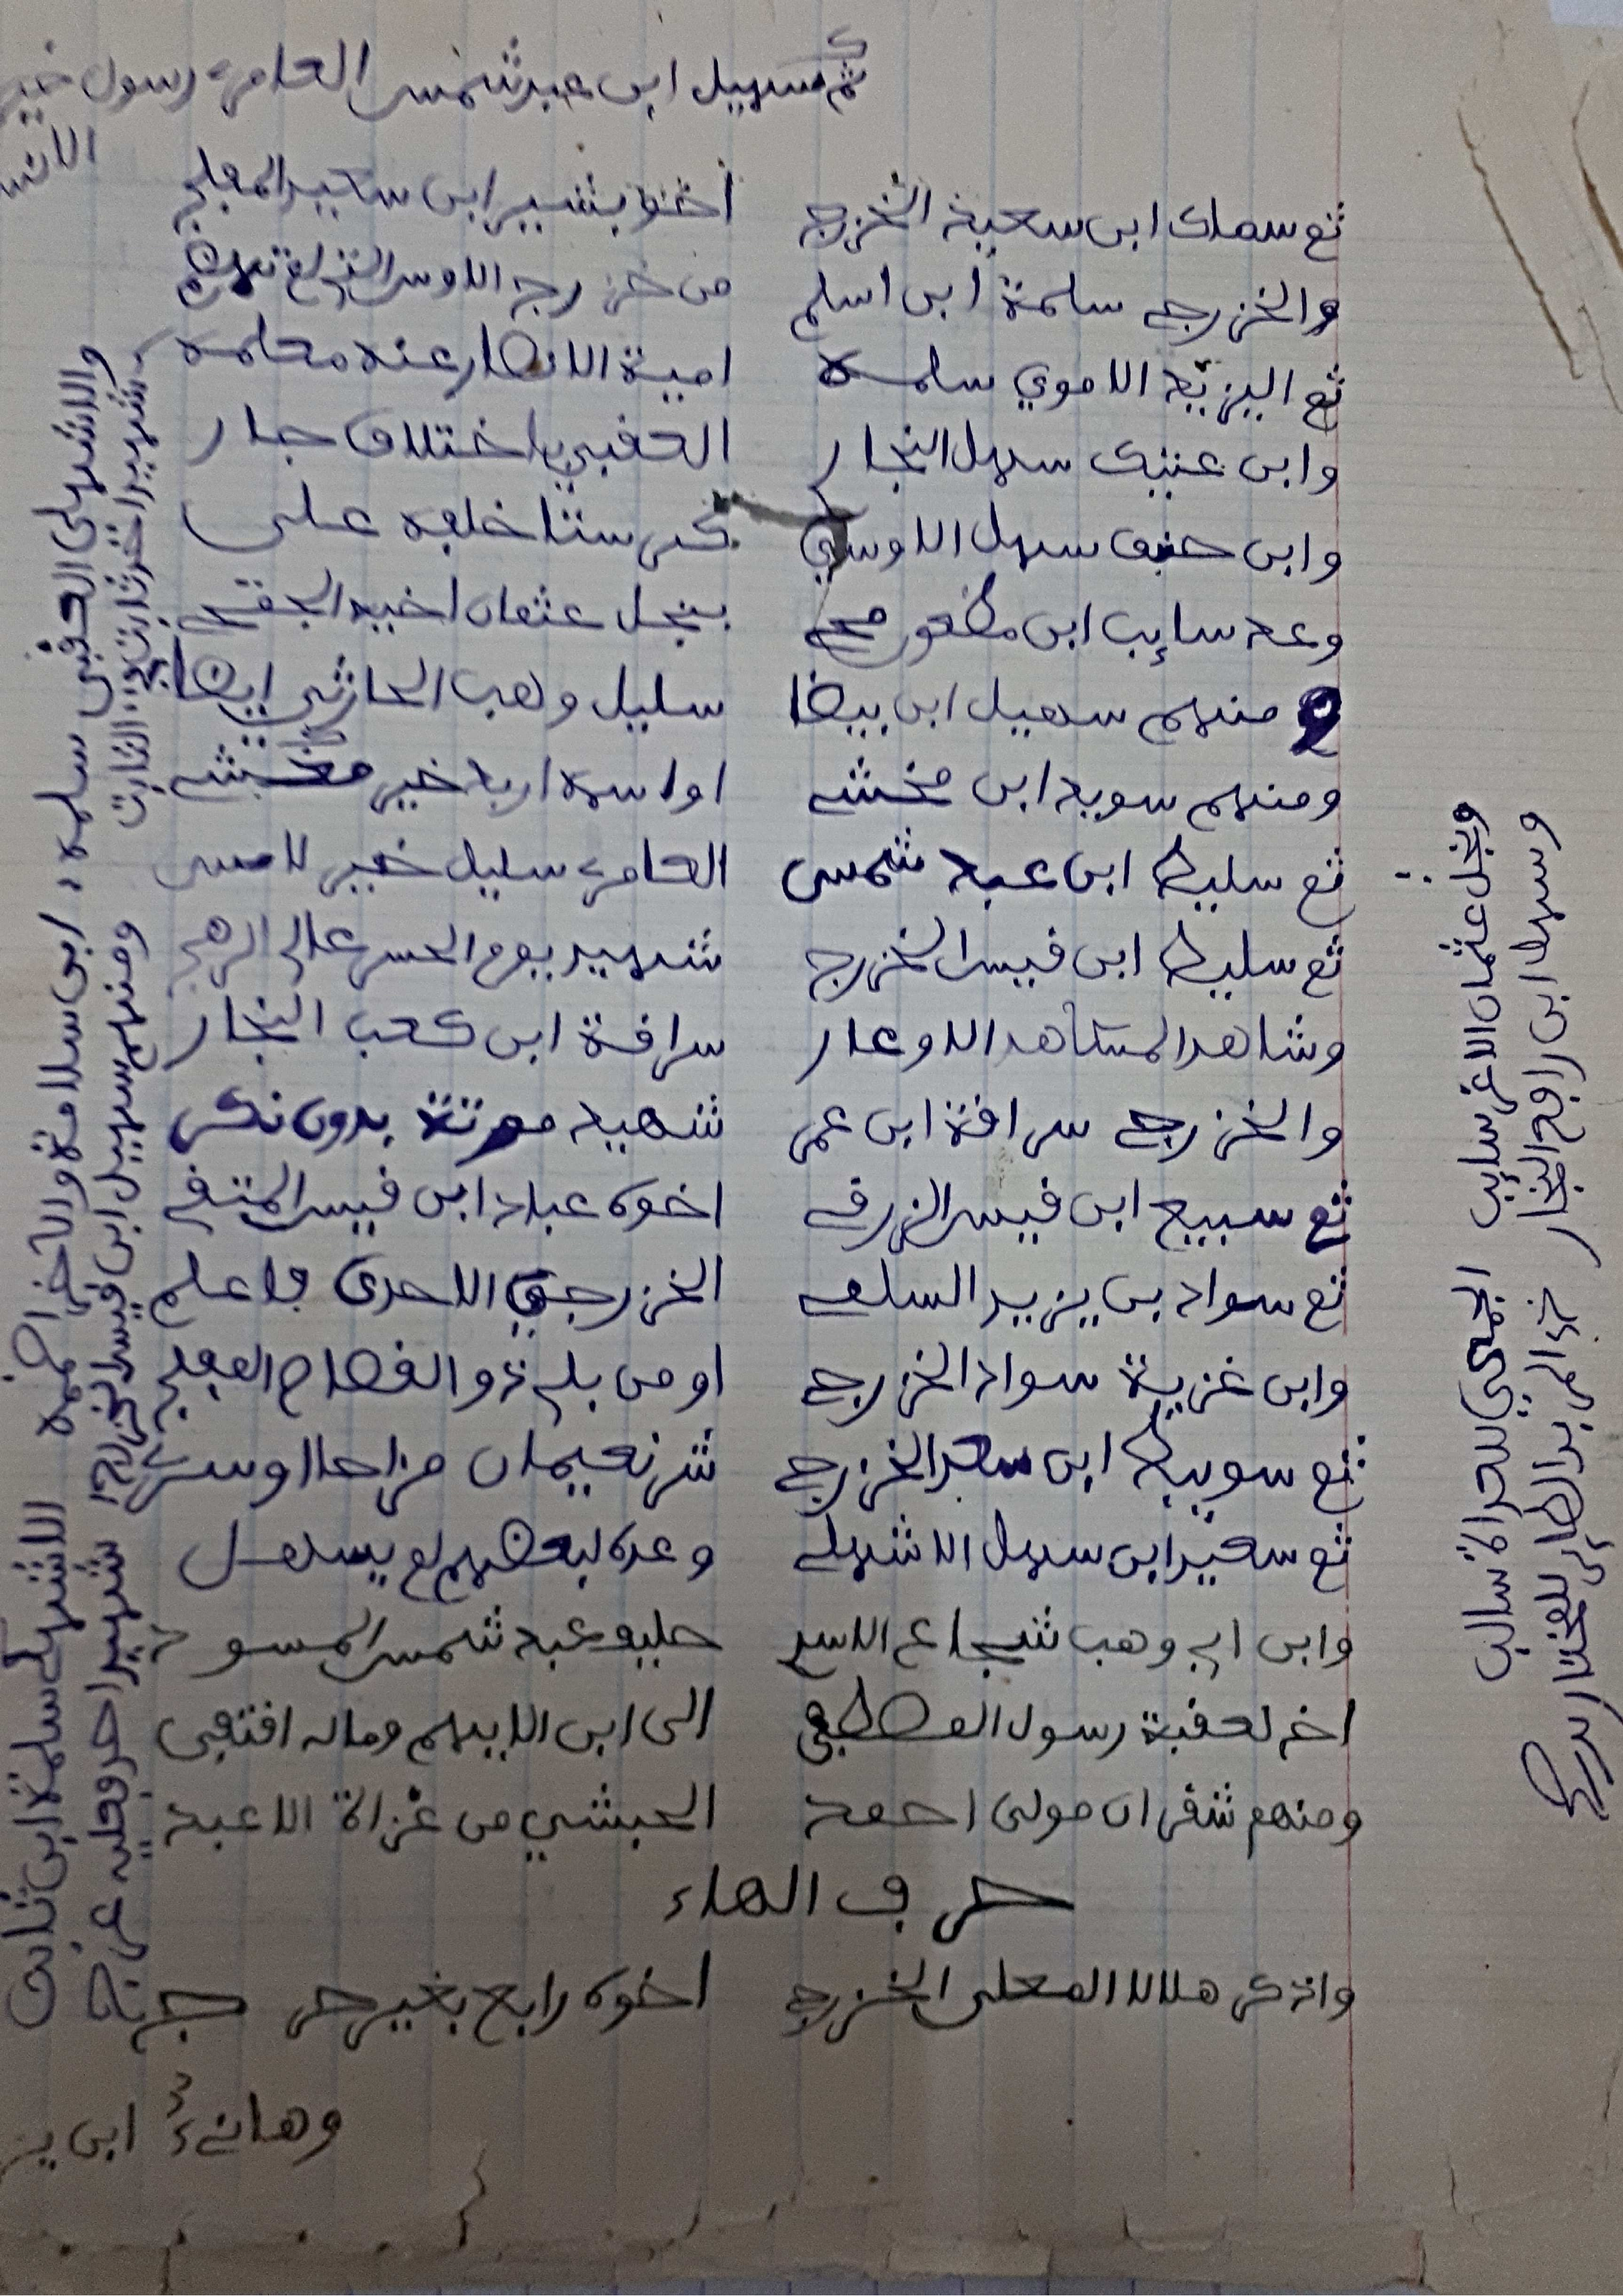 ثم سهيل ابن عبد شمس العامري رسول خير
الانس
ثم سماك ابن سعد الخزرج أخو بشير ابن سعد المفلج
والخزرجي سلمة ابن اسلم من خزرج الاوس
ثم اليزيد الاموي سلمه امية الانصار عنه معلمه
وابن عتيك سهل النجار العقبي باختلاف جار
وابن حنيف سهل الاوسي كبر ستا خلفه على
وعد سايب ابن مظعون بنجل عثمان اخيه
ومنهم سهيل ابن بيضا سليل وهب الحارثي ايضا
ومنهم سويد ابن مخشي او اسمه اربد خير مخشي
ثم سليط ابن عبد شمس العامري سليل خير لامس
ثم سليط ابن قيس الخزرج شهيد يوم الجسر عالي الرهج
وشاهد المشاهد الاوعار سراقة ابن كعب النجار
والخزرجي سراقة ابن عمر شهيد موتة بدون نكر
ثم سبيع ابن قيس الزرقي اخوه عباد ابن قيس المتقي
ثم سواد بن يزيد السلمي الخزرجي الاحدي فاعلم
وابن غزية سواد الخزرجي او من بلي ذو القصاص المفلج
ثم سويبط ابن سعد الخزرجي شر نعيمان مزاحا اوسري
ثم سعد ابن سهل الاشهلي وعده لبعضهم لم يسهل
وابن ابي وهب شجاع الاسد حليف عبد شمس المسود
اخ لعقبة رسول المصطفى الى ابن الايهم وماله اقتفى
ومنهم شقران مولى احمد الحبشي من غزاة الاعبد
حرف الهاء
واذكر هلالا المعلى الخزرج اخوه رابع بغير حرج
وهانئ ابن ير
ونجل عثمان الاغر سايب الجمحي للعداة سالب
وسهل ابن رافع النجار جزا المربد الطاهر للمختار
والاشهلي العقبي سلمه ابن سلامة والآخر
شهيد اخر ثابت الثابت
ومنهم سهيل ابن قيس الخزرج شهيد احد وعليه عرج
الاشهلي سلمة ابن ثابت